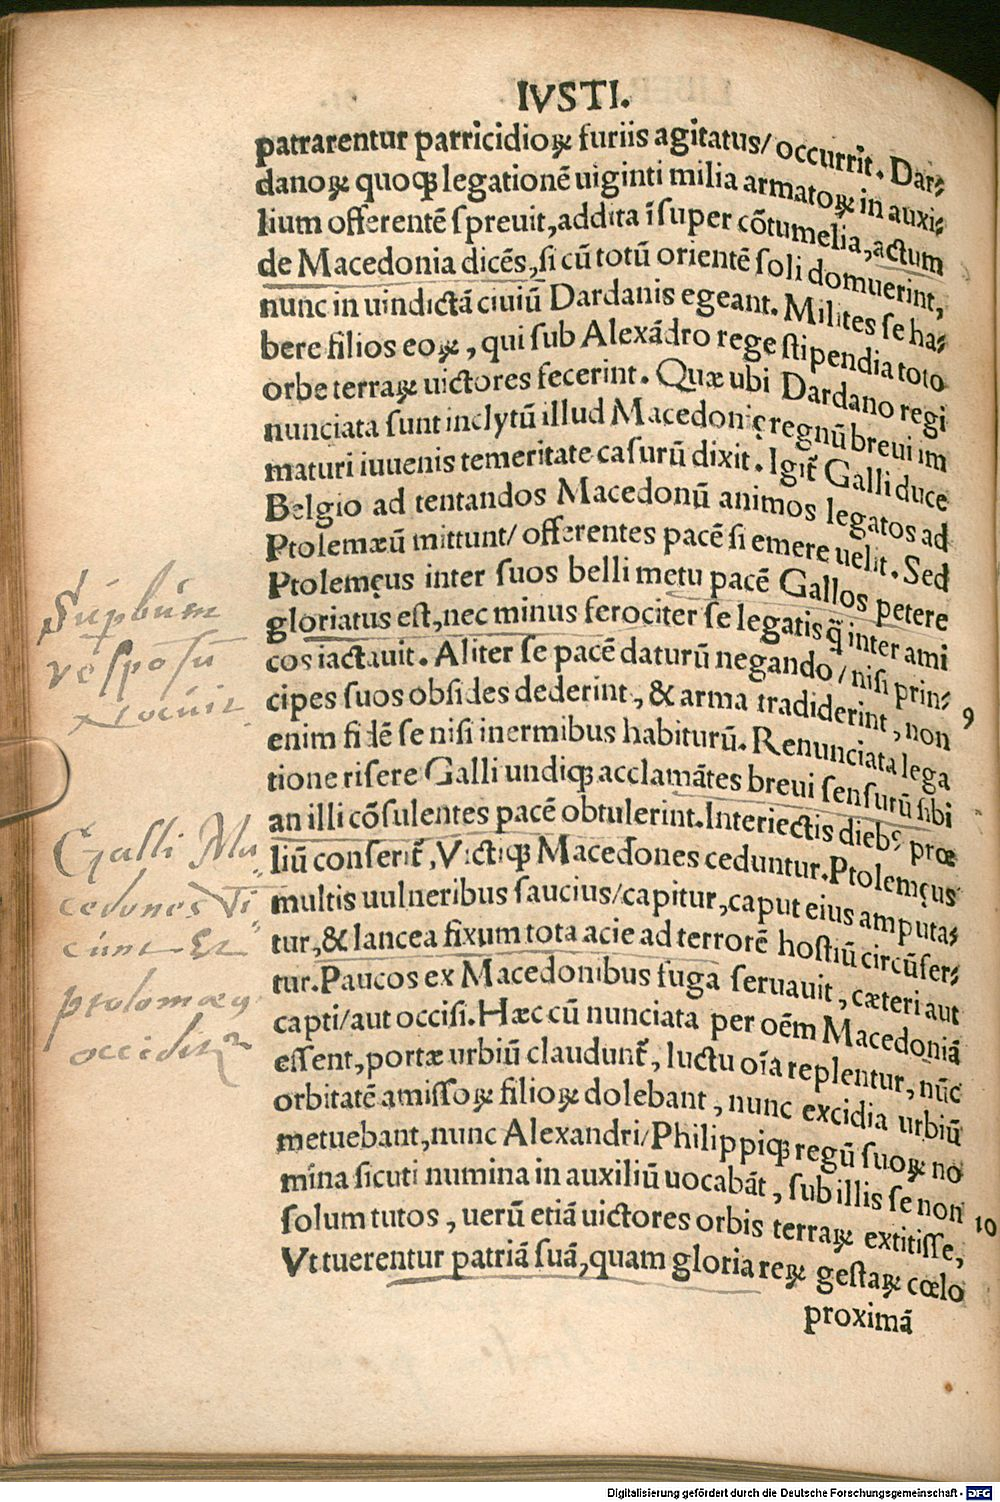 IVSTI.
patrarentur parricidioꝝ furiis agitatus/ occurrit. Dar⸗
danoꝝ quoqꝫ legationē uiginti milia armatoꝝ in auxi⸗
lium offerentē spreuit, addita īsuper cōtumelia, actum
de Macedonia dicēs, si cū totū orientē soli domuerint,
nunc in uindictā ciuiū Dardanis egeant. Milites se ha⸗
bere filios eoꝝ, qui sub Alexādro rege stipendia toto
orbe terraꝝ uictores fecerint. Quæ ubi Dardano regi
nunciata sunt inclytū illud Macedonię regnū breui im
maturi iuuenis temeritate casurū dixit. Igit̃ Galli duce
Belgio ad tentandos Macedonū animos legatos ad
Ptolemæū mittunt/ offerentes pacē si emere uelit. Sed
Ptolemęus inter suos belli metu pacē Gallos petere
gloriatus est, nec minus ferociter se legatis q̄̃ inter ami
cos iactauit. Aliter se pacē daturū negando/ nisi prin⸗
cipes suos obsides dederint, & arma tradiderint, non
9
enim fidē se nisi inermibus habiturū. Renunciata lega
tione risere Galli undiqꝫ acclamātes breui sensurū sibi
an illi cōsulentes pacē obtulerint. Interiectis dieb⁹ prœ
liū conserit̃, Victiqꝫ Macedones ceduntur. Ptolemęus
multis uulneribus saucius/ capitur, caput eius amputa⸗
tur, & lancea fixum tota acie ad terrorē hostiū circūfer⸗
tur. Paucos ex Macedonibus fuga seruauit, cæteri aut
capti/ aut occisi. Hæc cū nunciata per oēm Macedoniā
essent, portæ urbiū claudunt̃, luctu oīa replentur, nūc
orbitatē amissoꝝ filioꝝ dolebant, nunc excidia urbiū
metuebant, nunc Alexandri/ Philippiqꝫ regū suoꝝ no
mīna sicuti numina in auxiliū uocabāt, sub illis se non
solum tutos, uerū etiā uictores orbis terraꝝ extitisse,
10
Vt tuerentur patriā suā, quam gloria reꝝ gestaꝝ cœlo
proximā
Supbum
responsū
nocuit
Galli Ma
cedones Vi
cunt Et
ptolomæꝰ
occidit̃
Digitalisierung gefördert durch die Deutsche Forschungsgemeinschaft - DFG